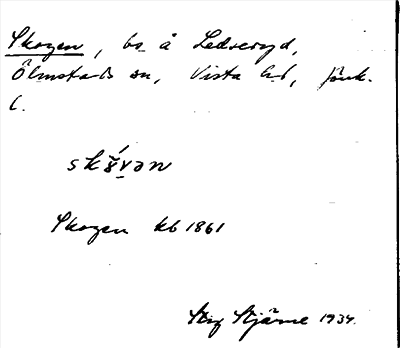 Skogen, bs å Ledseryd,
Ölmstads sn, Vista hd, Jönk.
l.
Skogen kb 1861
Stig Stjärne 1934.